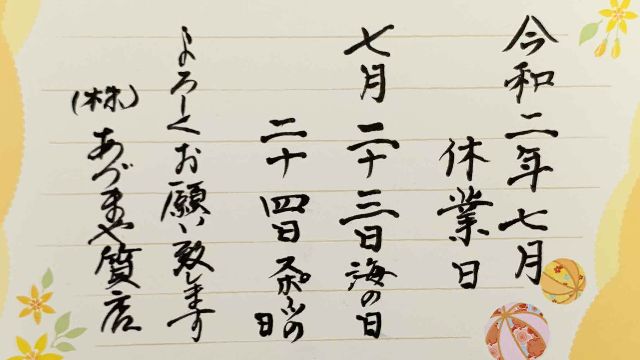 令和二年七月
休業日
七月二十三日海の日
二十四日スポーツの日
よろしくお願い致します
(株)あづまや質店